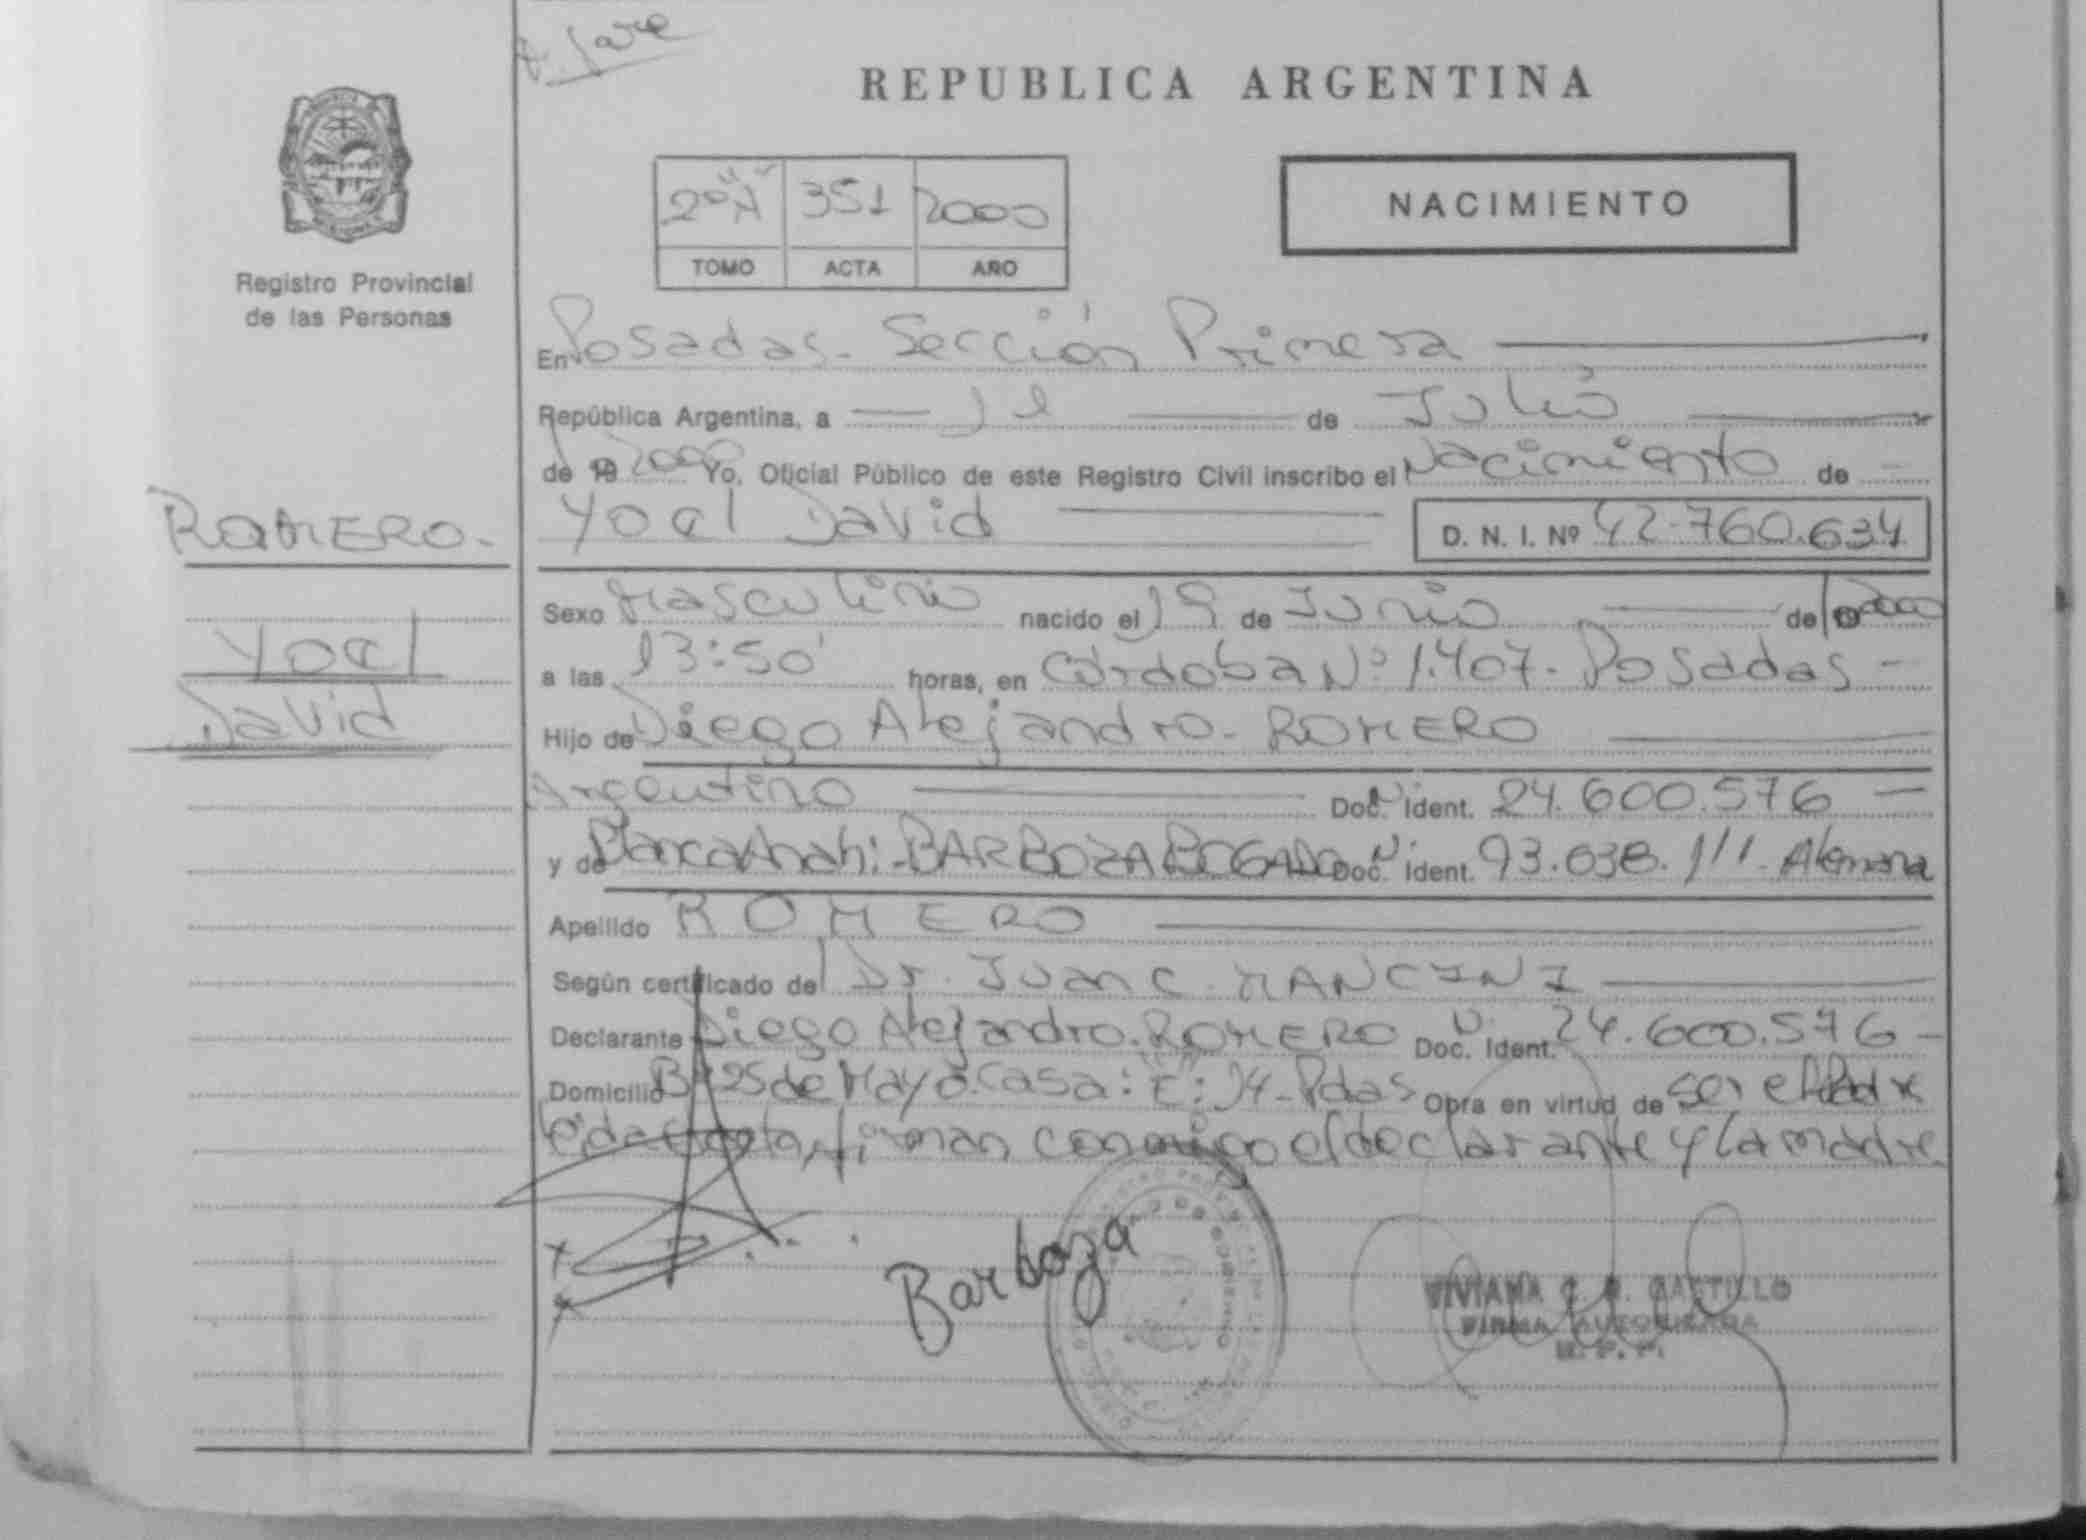 REPUBLICA ARGENTINA
2º "A" 351 2000
TOMO ACTA AÑO
NACIMIENTO
Registro Provincial
de las Personas
En Posadas - Sección Primera
República Argentina, a de Julio
de 19 2000 Yo, Oficial Público de este Registro Civil inscribo el Nacimiento de
Yoel David D. N. I. Nº 42.760.634
ROMERO.
Yoel
David
Sexo Masculino nacido el 19 de Junio de 19 2000
a las 13:50' horas, en Córdoba Nº 1.407 - Posadas -
Hijo de Diego Alejandro - ROMERO
Argentino Doc. Ident. 24.600.576 -
y de Blanca Anahi - BARBOZA BOGADO Doc. Ident. 93.638.111 - Alemana
Apellido ROMERO
Según certificado del Dr. Juan C. MANCINI
Declarante Diego Alejandro. ROMERO Doc. Ident. 24.600.576 -
Domicilio Bº 25 de Mayo. Casa: "E": 14 - Pdas Obra en virtud de ser el Padre
Leida el acta, firman conmigo el declarante y la madre
Barboza
VIVIANA CASTILLO
FIRMA AUTORIZADA
R. P. P.